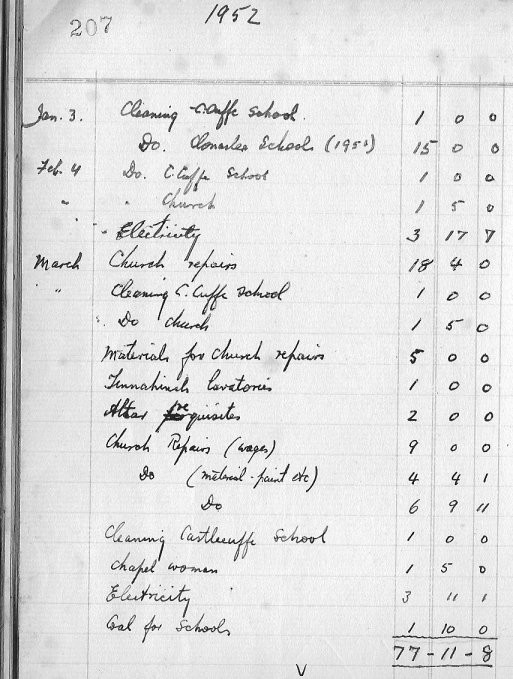 207
1952
Jan. 3. Cleaning C.Cuffe School. 1 0 0
Do. Clonaslee Schools (1951) 15 0 0
Feb. 4 Do. C.Cuffe School 1 0 0
" " Church 1 5 0
" " Electricity 3 17 7
March Church repairs 18 4 0
" Cleaning C.Cuffe School 1 0 0
" Do Church 1 5 0
Materials for Church repairs 5 0 0
Tinnahinch lavatories 1 0 0
Altar requisites 2 0 0
Church Repairs (wages) 9 0 0
Do (material - paint etc) 4 4 1
Do 6 9 11
Cleaning Castlecuffe School 1 0 0
Chapel woman 1 5 0
Electricity 3 11 1
Coal for Schools 1 10 0
77 - 11 - 8
V